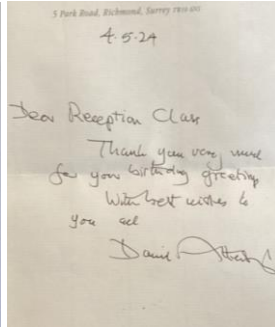 5 Park Road, Richmond, Surrey
4.5.24
Dear Reception Class
Thank you very much
for your birthday greeting
With best wishes to
you all
David